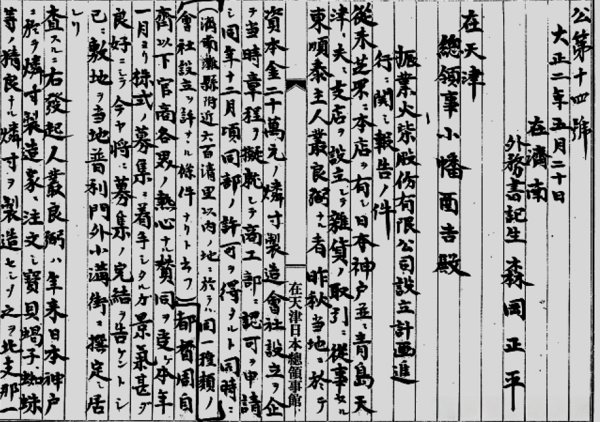 公第十四號
大正二年五月二十日
在濟南
外務書記生 森岡正平
在天津
總領事小幡酉吉殿
振業火柴股份有限公司設立計画進
行ニ関シ報告ノ件
從来芝罘ニ本店ヲ有シ日本神戸並ニ青島天
津ニ夫々支店ヲ設立シテ雜貨ノ取引ニ從事セル
東順泰主人叢良弼ナル者昨秋当地ニ於テ
資本金二十萬元ノ燐寸製造會社設立ヲ企
テ当時章程ヲ擬シテ商工部ニ認可ヲ申請
シ同年十二月頃同部ノ許可ヲ得タルト同時ニ
(濟南濰縣附近六百清里以内ノ地ニ於テハ同一種類ノ
會社設立ヲ許サヽル條件ナリト云フ)都督周自
齊以下官商各界ノ熱心ナル賛同ヲ受ケ本年
一月ヨリ株式ノ募集ニ着手シタル力景氣甚ダ
良好ニシテ今ヤ將ニ募集ノ完結ヲ告ケントシ
已ニ敷地ヲ当地普利門外小溝街ニ撰定シ居
レリ
査スルニ右發起人叢良弼ハ年来日本神戸
ニ於テ燐寸製造家ニ注文シ寶貝蝎子蜘蛛
等ノ精良ナル燐寸ヲ製造セシメ之ヲ北支那一
在天津日本總領事館